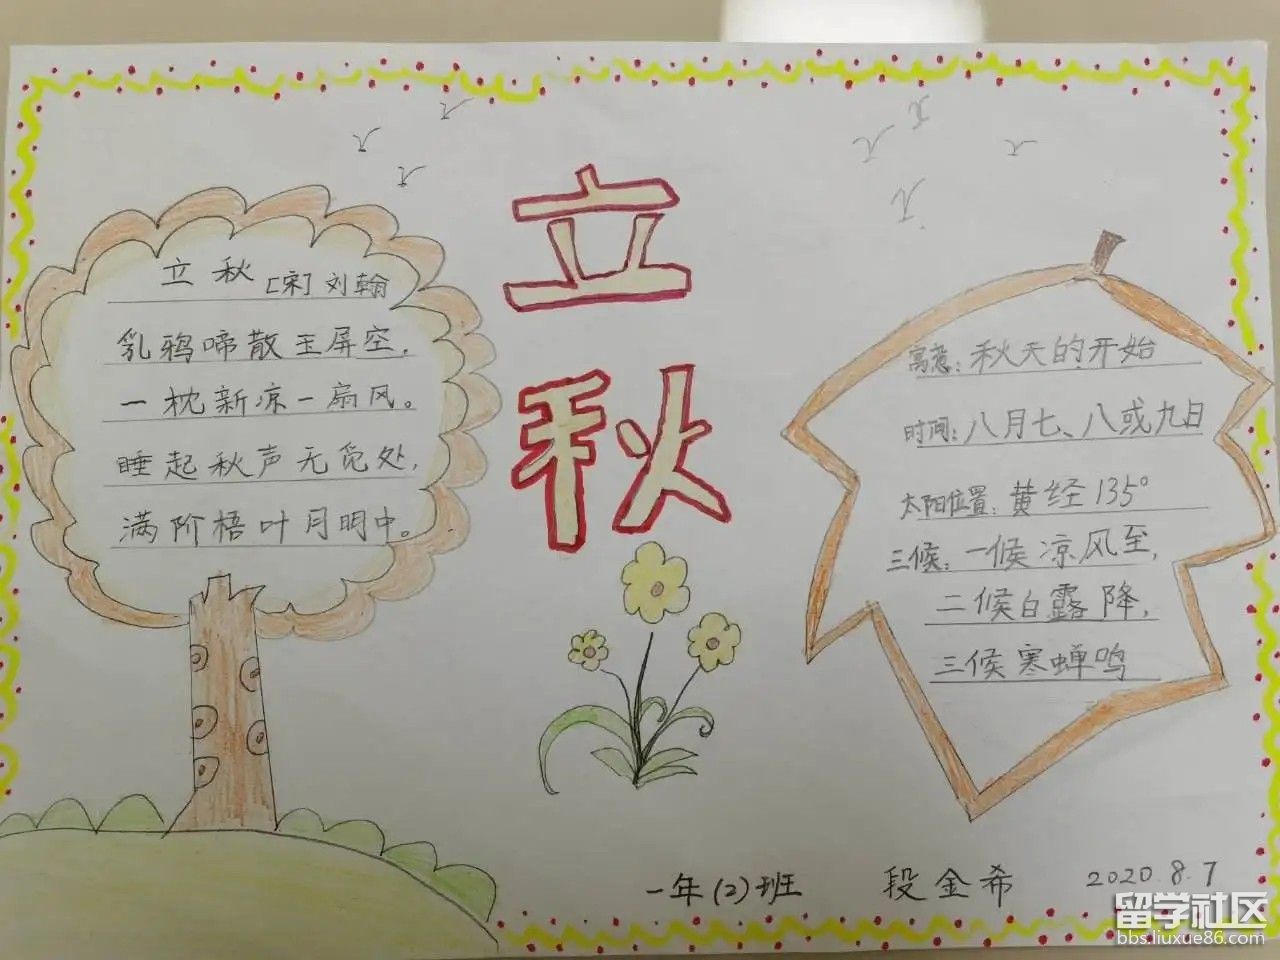 立秋
立秋 [宋] 刘翰
乳鸦啼散玉屏空，
一枕新凉一扇风。
睡起秋声无觅处，
满阶梧叶月明中。
寓意：秋天的开始
时间：八月七、八或九日
太阳位置：黄经135°
三候：一候凉风至，
二候白露降，
三候寒蝉鸣
一年(2)班 段金希 2020.8.7
留学社区
bbs.liuxue86.com